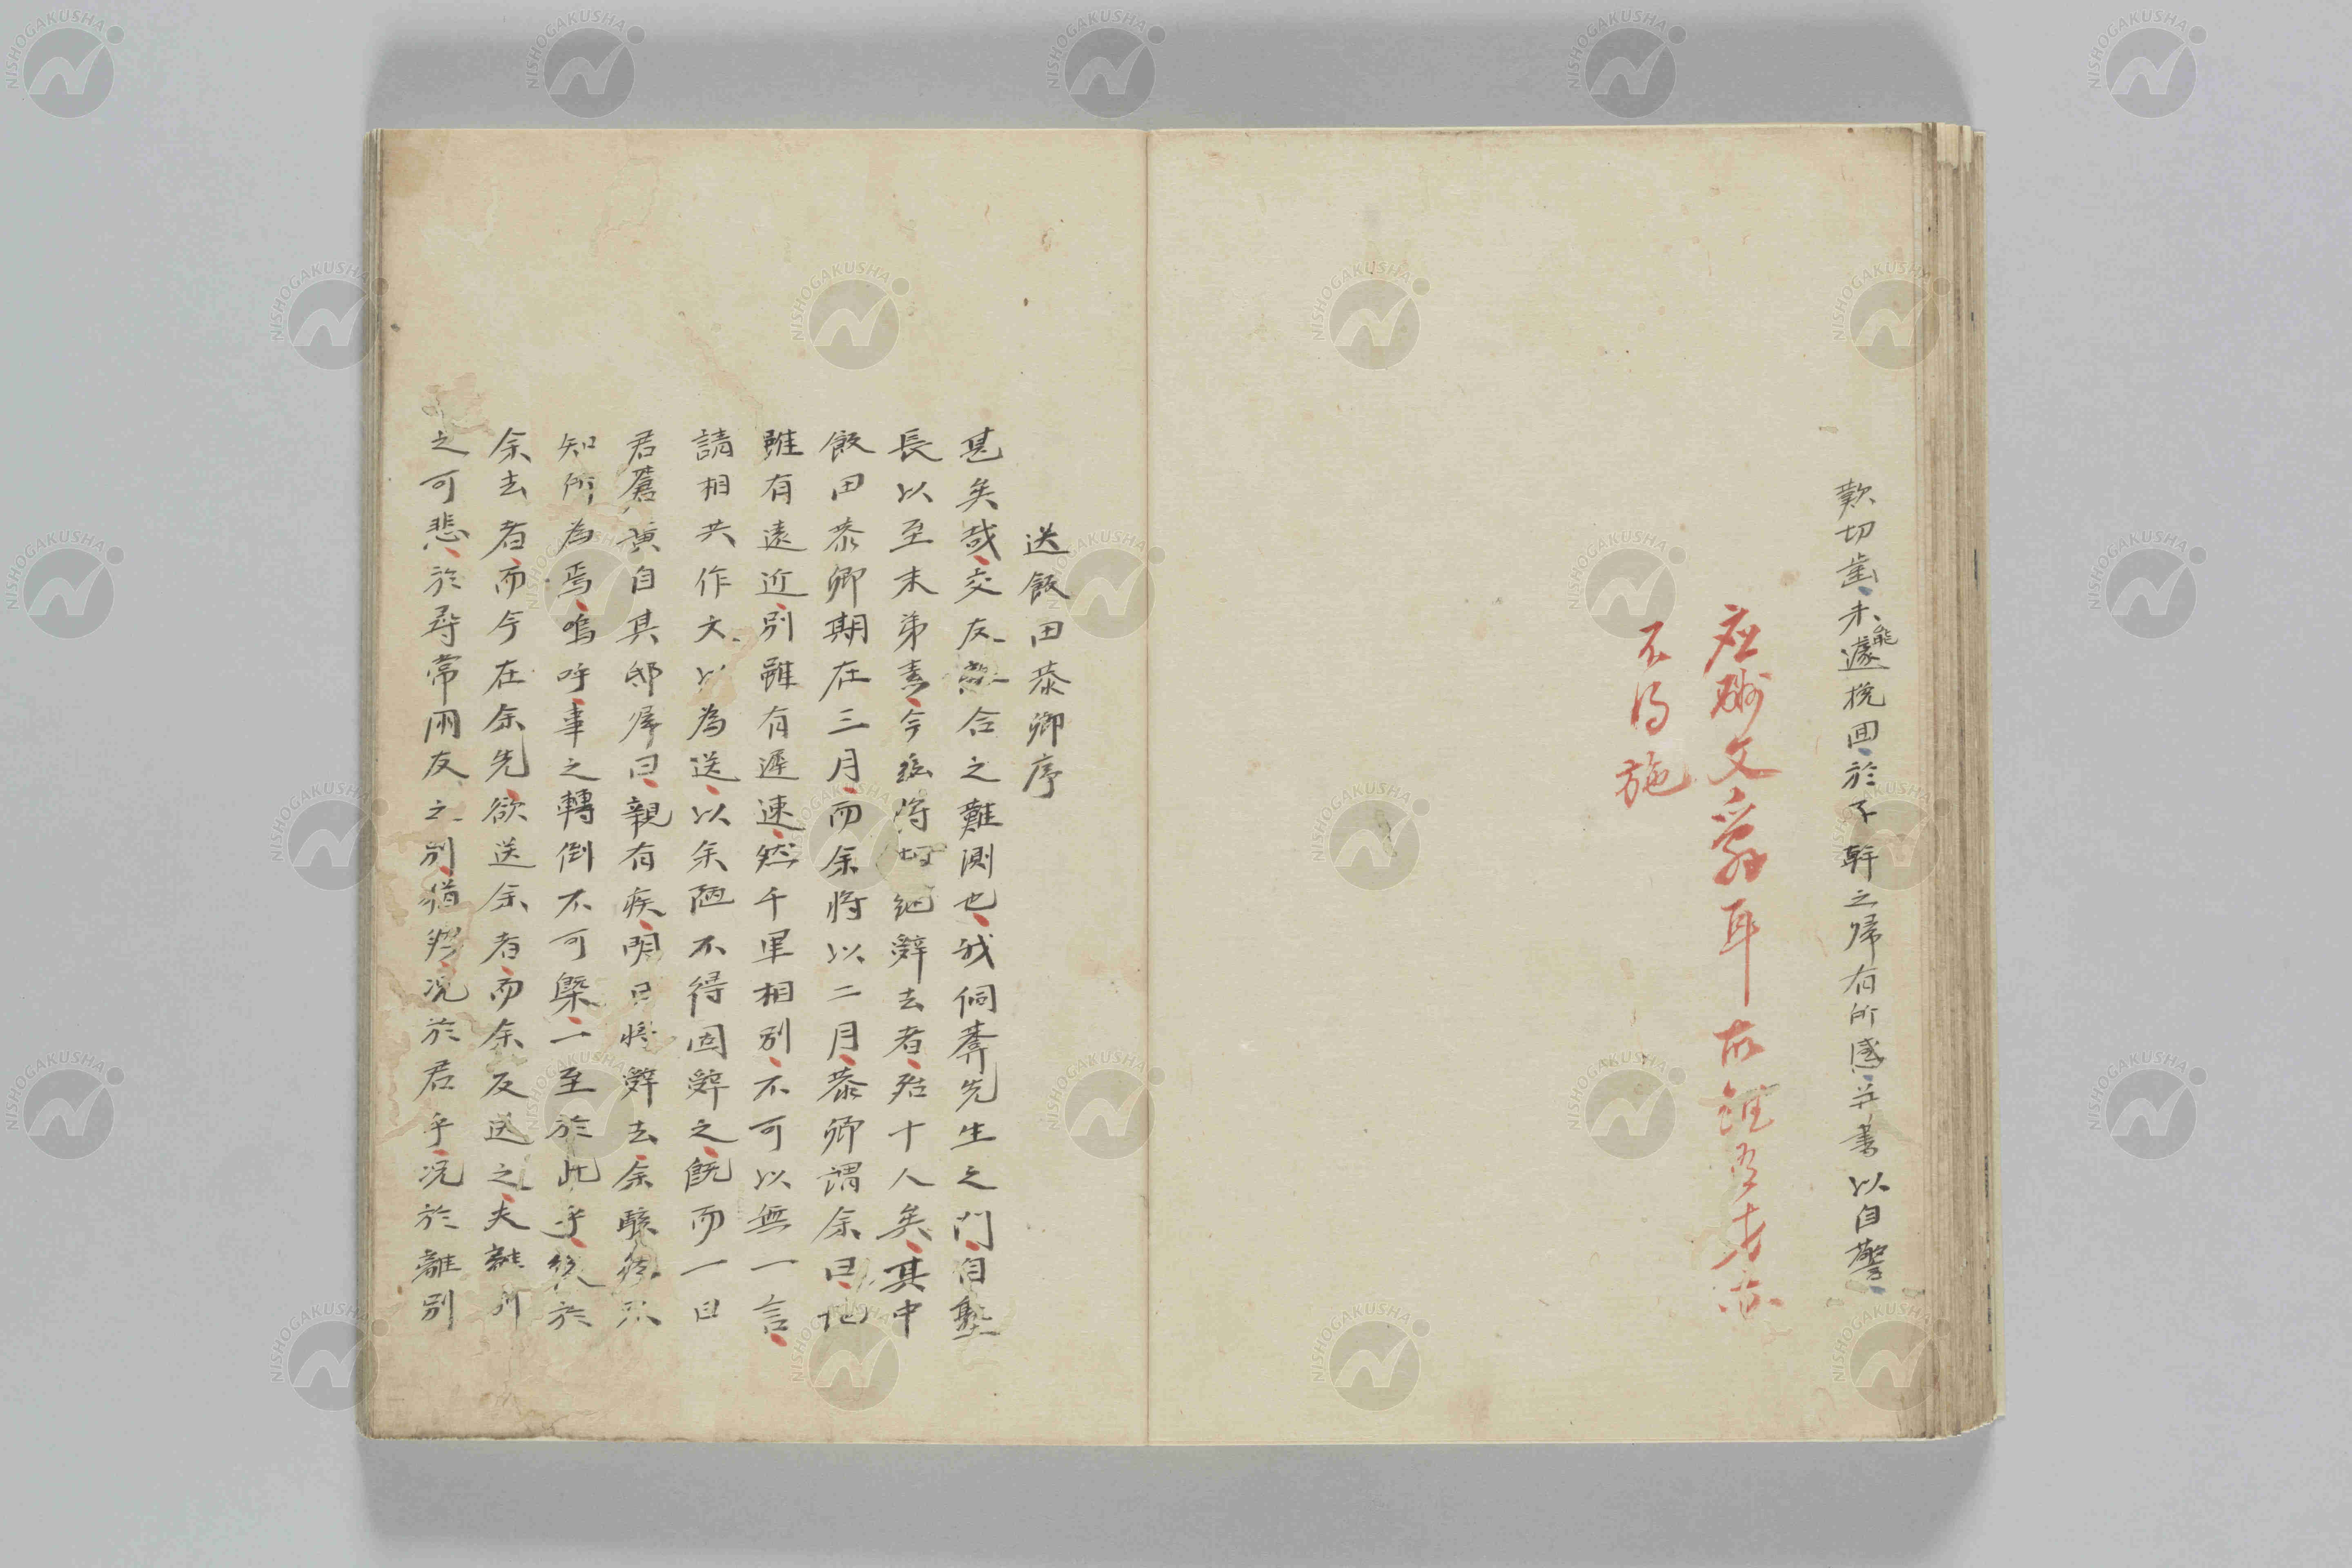 歎切齒未能遽挽回於子幹之歸有所感并書以自警
應酬文辭耳故雖有才亦
不得施
送飯田泰卿序
甚矣哉交友離合之難測也我侗菴先生之門自塾
長以至末弟素今茲將切絕辭去者殆十人矣其中
飯田泰卿期在三月而余將以二月泰卿謂余曰地
雖有遠近別雖有遲速然千里相別不可以無一言
請相共作文以為送以余陋不得固辭之既而一日
君蒼黃自其邸歸曰親有疾明日將辭去余駭然不
知所為焉嗚呼事之轉倒不可槩一至於此乎後於
余去者而今在余先欲送余者而余反送之夫離別
之可悲於尋常朋友之別猶然況於君乎況於離別
NISHOGAKUSHA